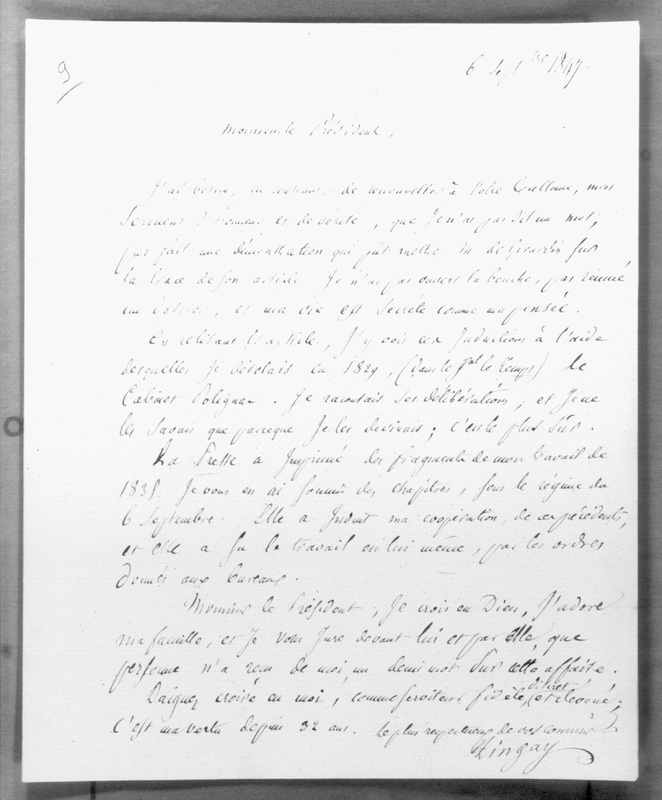 9/
6 Septbre 1847.
Monsieur le Président,
J'ai besoin, de renouveller à Votre Excellence, mon
Serment d'honneur et de vérité, que Je n'ai pas dit un mot,
pas fait une démonstration qui pût mettre M. de Girardin Sur
la trace de son article. Je n'ai pas ouvert la bouche, pas remué
un dossier, et ma vie est Secrète comme ma pensée.
En relisant l'article, J'y vois ces Inductions à l'aide
desquelles Je désolais en 1829, (dans le Jal le Temps) le
Cabinet Polignac. Je racontais Ses délibérations, et Je ne
les Savais que parceque Je les devinais; c'est le plus Sûr.
La Presse a Imprimé des fragments de mon travail de
1835. Je vous en ai soumis des chapitres, Sous le régime du
6 Septembre. Elle a Induit ma coopération, de ces précédents,
et elle a Su le travail en lui même, par les ordres
donnés aux bureaux.
Monsieur le Président, Je crois en Dieu, J'adore
ma famille, et Je vous Jure devant lui et par elle, que
personne n'a rien de moi, un demi mot Sur cette affaire.
Daignez croire en moi, comme serviteur fidèle, discret et dévoué;
C'est ma vertu depuis 32 ans. Le plus respectueux de vos
Lingay